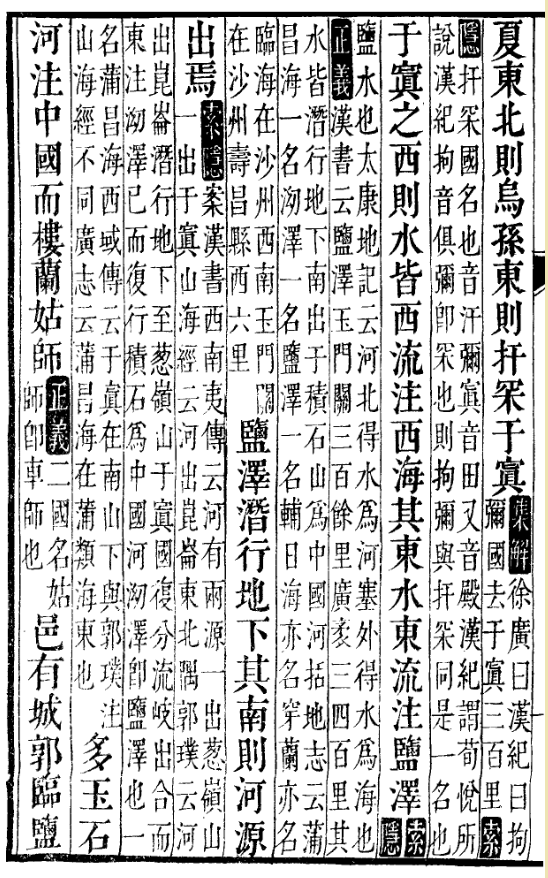 夏東北則烏孫東則扜罙于窴集解徐廣曰漢紀曰拘
彌國去于窴三百里索
隱扜罙國名也音汗彌窴音田又音殿漢紀謂荀悅所
說漢紀拘音俱彌卽罙也則拘彌與扜罙同是一名也
于窴之西則水皆西流注西海其東水東流注鹽澤索隱
鹽水也太康地記云河北得水爲河塞外得水爲海也
正義漢書云鹽澤玉門關三百餘里廣袤三四百里其
水皆潛行地下南出于積石山爲中國河拓地志云蒲
昌海一名泑澤一名鹽澤一名輔日海亦名穿蘭亦名
臨海在沙州西南玉門關
在沙州壽昌縣西六里
鹽澤潛行地下其南則河源
出焉索隱案漢書西南夷傳云河有兩源一出葱嶺山
一出于窴山海經云河出崑崙東北隅郭璞云河
出崑崙潛行地下至葱嶺山于窴國復分流岐出合而
東注泑澤已而復行積石爲中國河泑澤卽鹽澤也一
名蒲昌海西域傳云于窴在南山下與郭璞注
山海經不同廣志云蒲昌海在蒲類海東也
多玉石
河注中國而樓蘭姑師正義二國名姑
師卽車師也
邑有城郭臨鹽